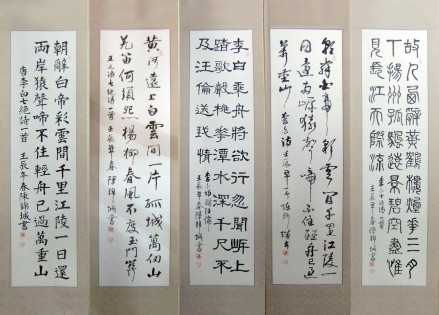 故人西辭黃鶴樓煙花三月
下揚州孤帆遠影碧空盡惟
見長江天際流
朝辭白帝彩雲間千里江陵一
日還兩岸猿聲啼不住輕舟已過
萬重山 李白詩 壬辰年
李白乘舟將欲行忽聞岸上
踏歌聲桃花潭水深千尺不
及汪倫送我情
黃河遠上白雲間一片孤城萬仞山
羌笛何須怨楊柳春風不度玉門關
王之渙七絕詩一首 壬辰年春陳錦城書
朝辭白帝彩雲間千里江陵一日還
兩岸猿聲啼不住輕舟已過萬重山
唐李白七絕詩一首 壬辰年春陳錦城書